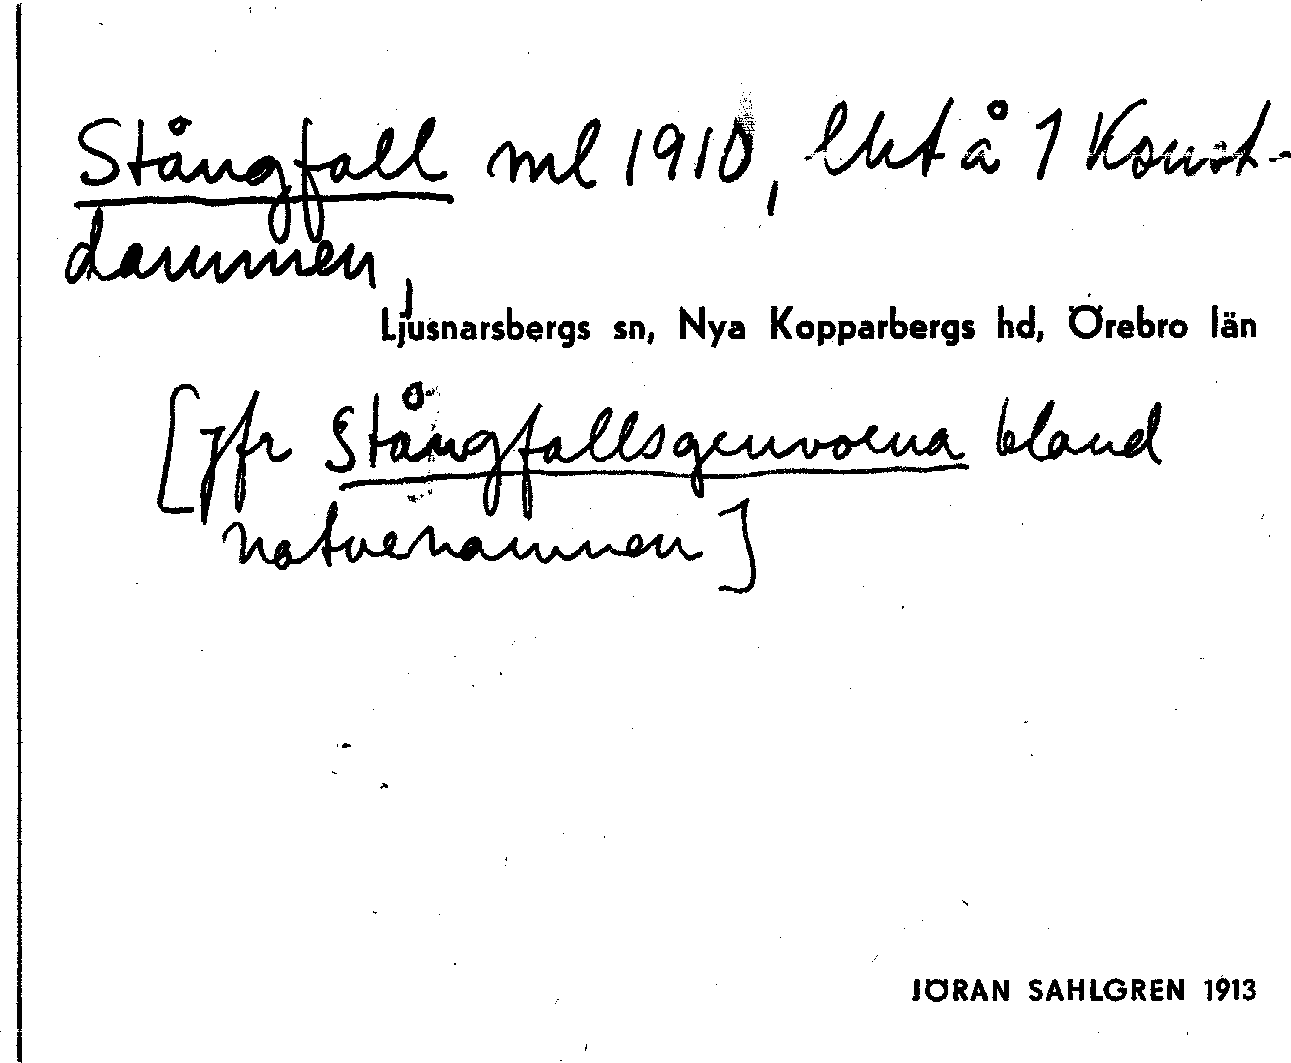 Stångfall ml 1910, lht å 1 Konst-
dammen,
Ljusnarsbergs sn, Nya Kopparbergs hd, Örebro län
[jfr Stångfallsgruvorna bland
naturnamnen]
JÖRAN SAHLGREN 1913